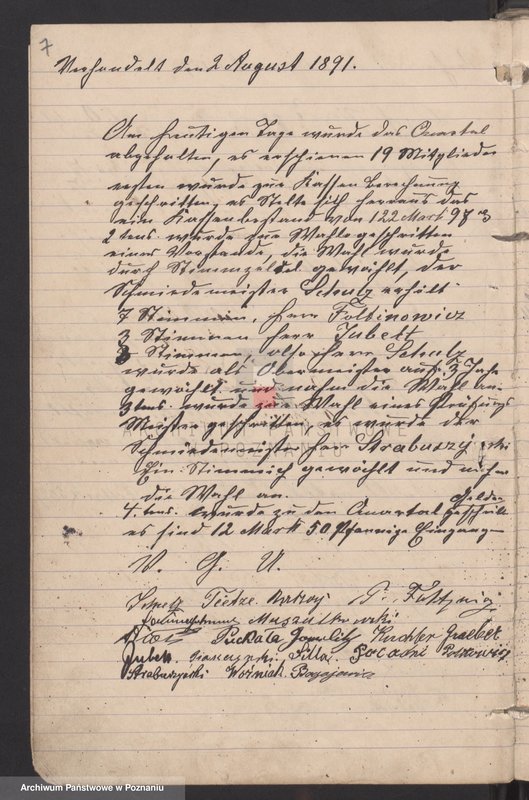 7
Verhandelt den 2 August 1891.
Am heutigen Tage wurde das Quartal
abgehalten, es erschienen 19 Mitglieder
erstens wurde zur Kassen Berechnung
geschritten, es stelte sich heraus das
ein Kassenbestand von 122 Mark 97 
2 tens. wurde zur Wahl geschritten
eines Vorstande, die Wahl wurde
durch Stimmzettel gewählt, der
Schmiedemeister Schulz erhält
7 Stimmen, Herr Foltinowicz
3 Stimmen Herr Jubelt
Stimmen, also Herr Schulz
wurde als Obermeister auf 3 Jahr
gewählt und nahm die Wahl an.
3 tens. wurde zur Wahl eines Prüfungs
Meister geschritten es wurde der
Schmiedemeister Herr Straburzynski
Ein Stimmich gewählt und nahm
die Wahl an.
4. tens. wurde zu den Quartal gelder
es sind 12 Mark 50 Pfennige Eingang
V. G. U.
Schulz Tietze
Muszalkowski
Pickala Kuchler Graeber
Jubelt. Silla. Pocadni
Straburzynski Wozniak
Archiwum Państwowe w Poznaniu